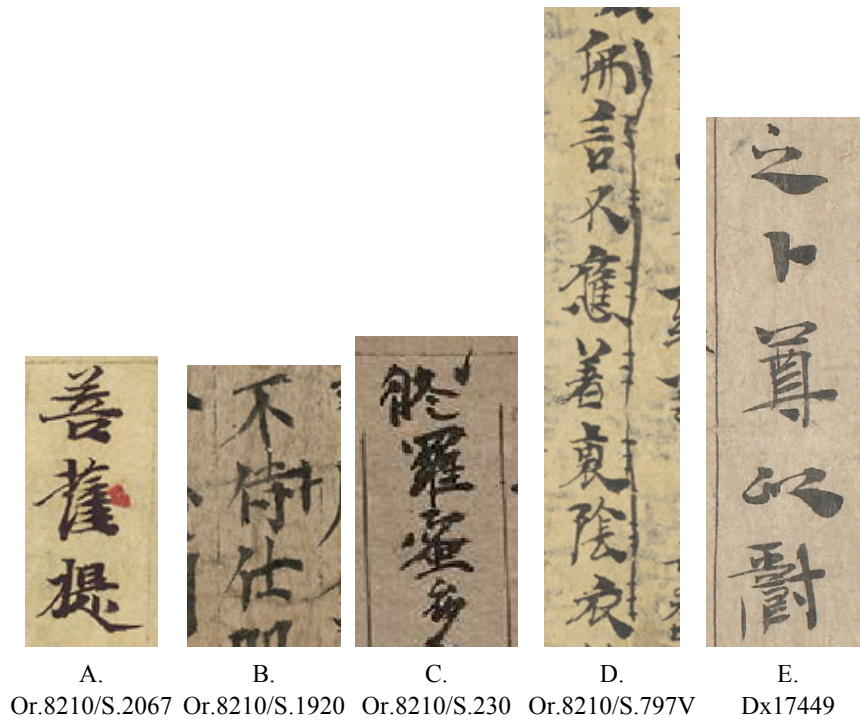 菩薩提
不侍仕
羅蜜多
言不應著陰衣
之卜尊以爵
A.
Or.8210/S.2067
B.
Or.8210/S.1920
C.
Or.8210/S.230
D.
Or.8210/S.797V
E.
Dx17449